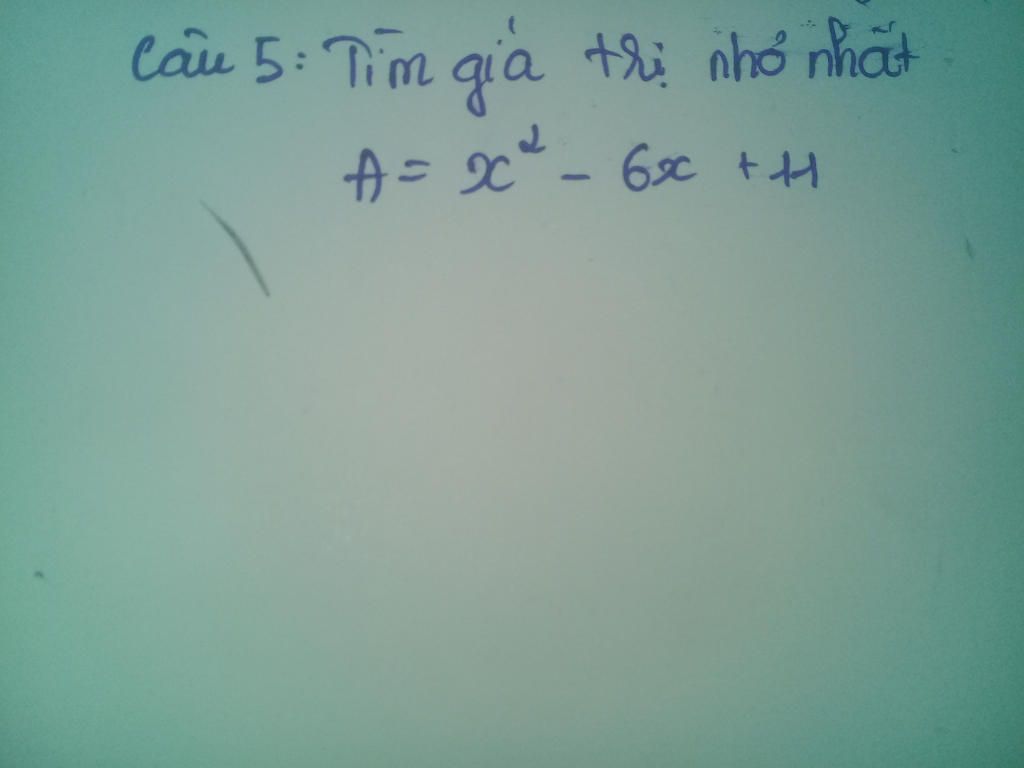 Câu 5: Tìm giá trị nhỏ nhất
A = x² - 6x + 11